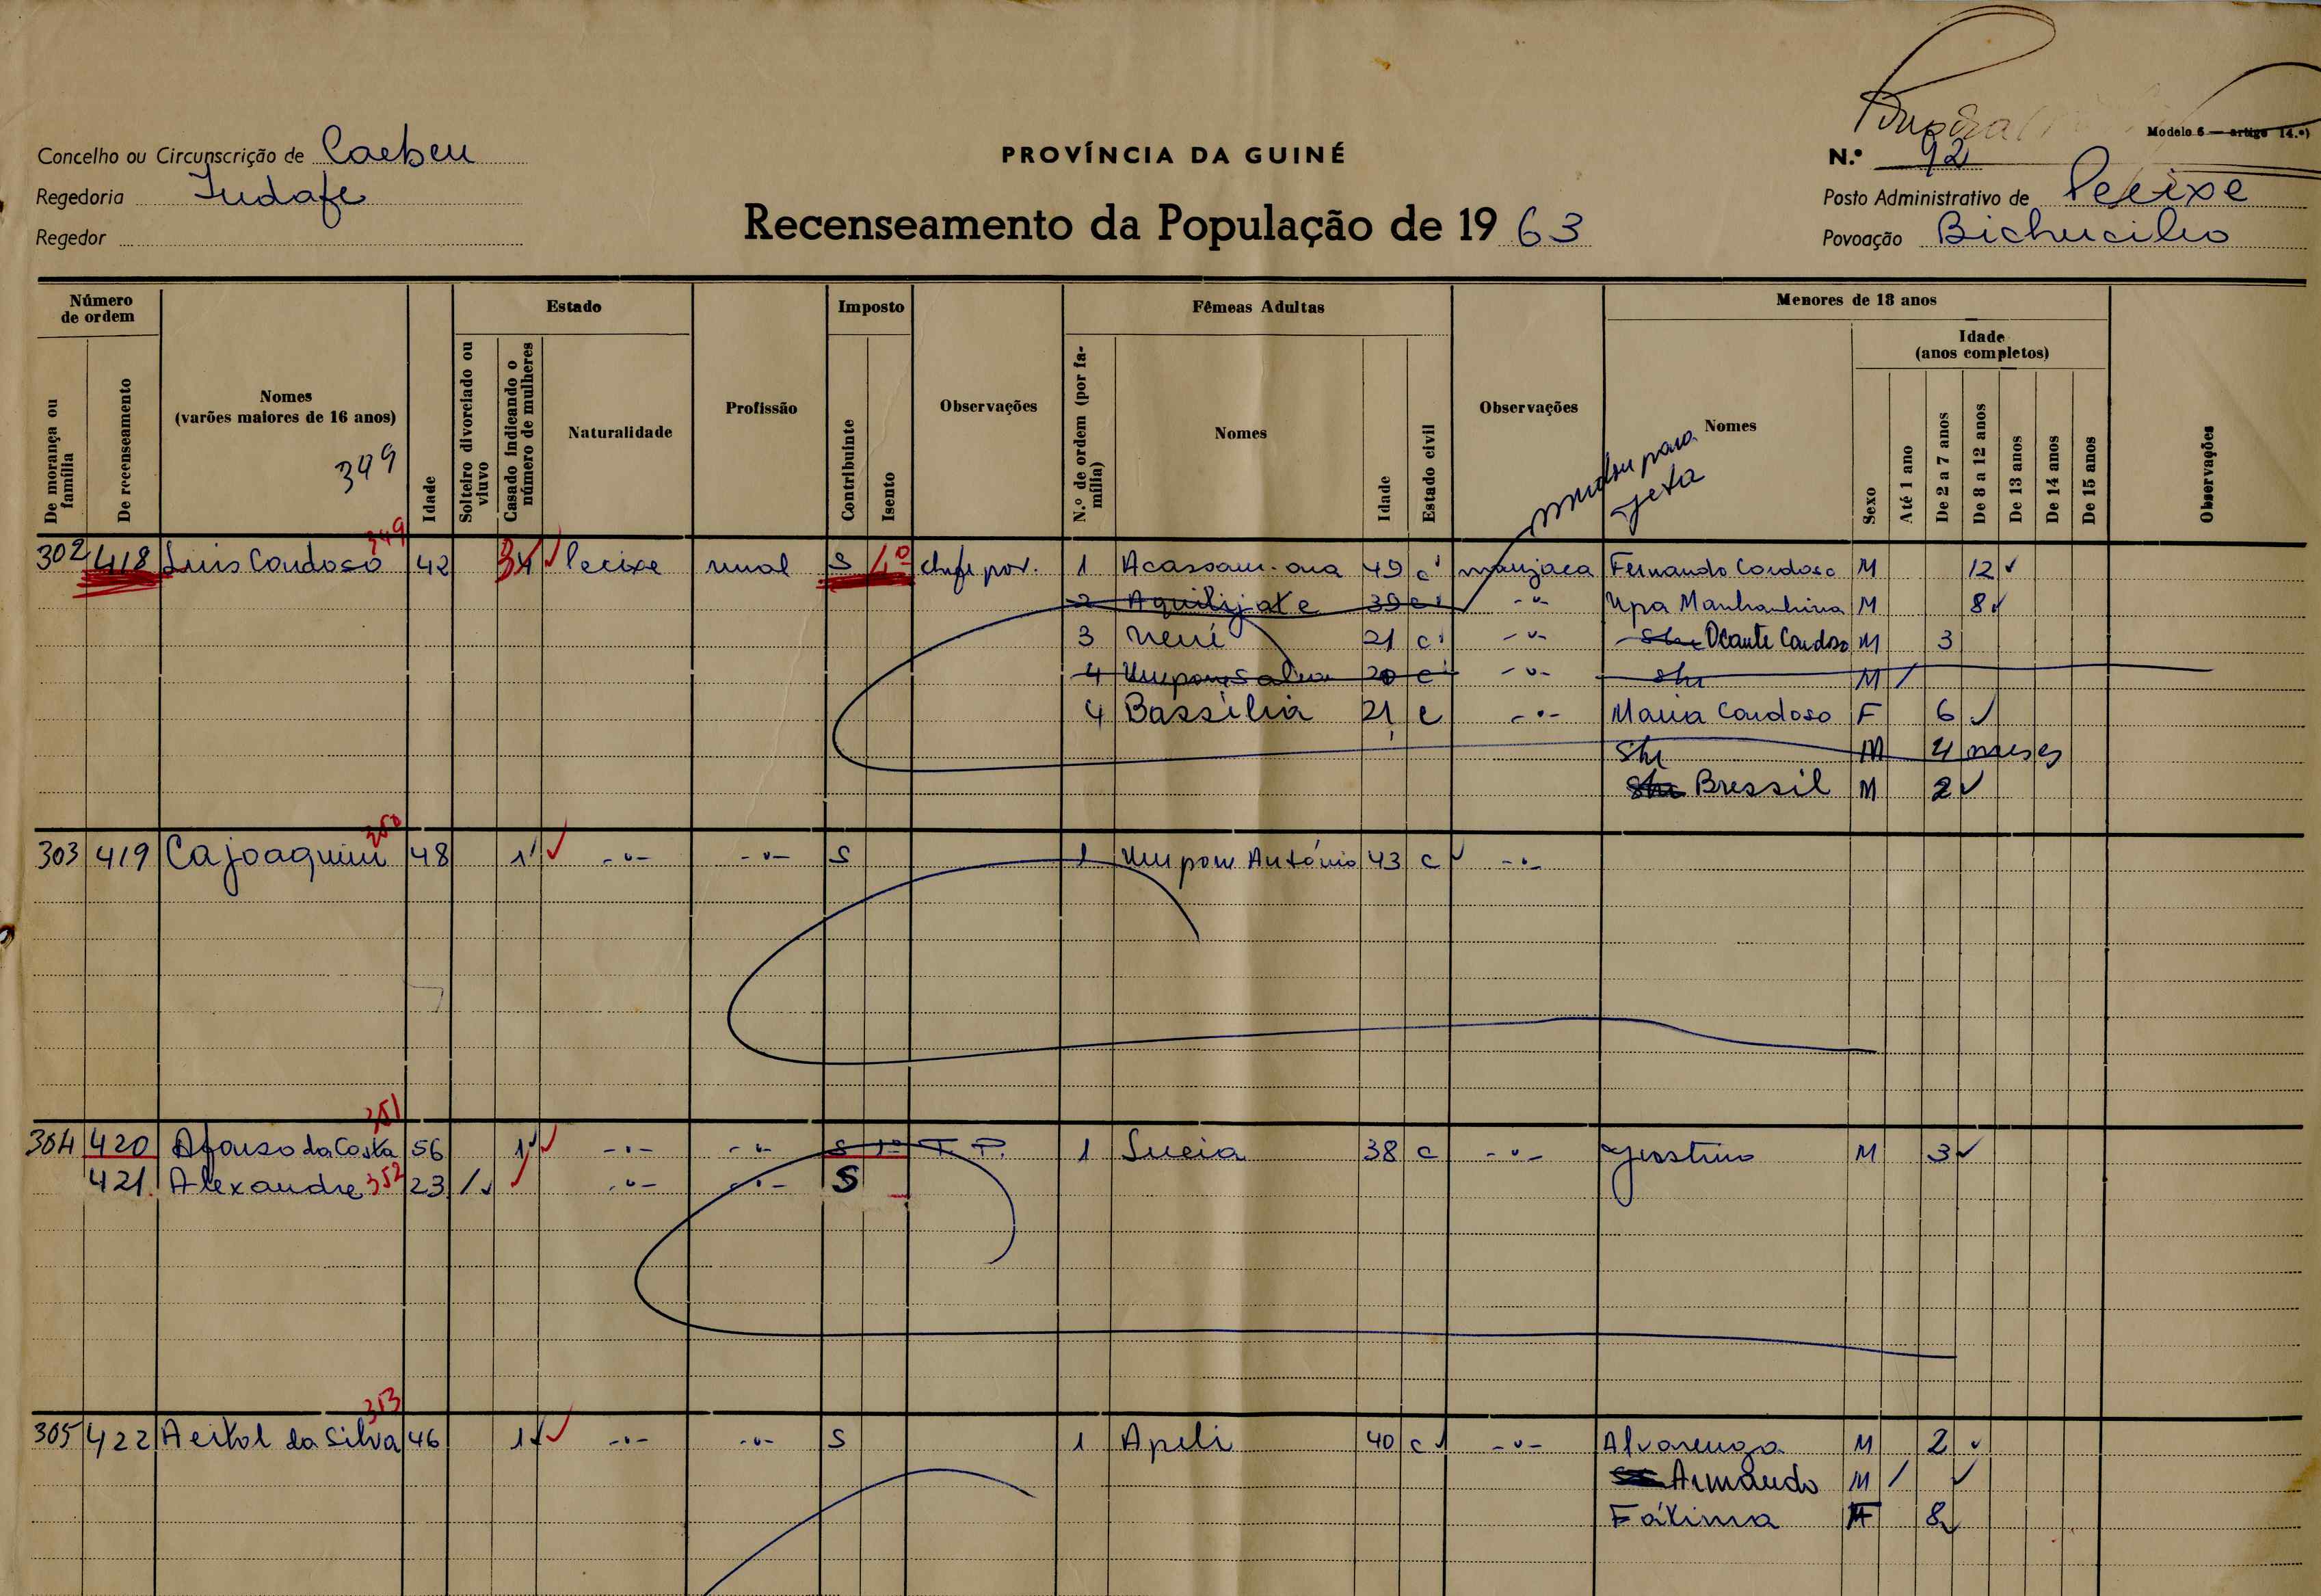 Modelo 6 — artigo 14.º)
Concelho ou Circunscrição de Caebeu
PROVÍNCIA DA GUINÉ
N.º 92
Regedoria Iudafe
Posto Administrativo de Pecixe
Recenseamento da População de 1963
Regedor
Povoação Bichucilio
Número de ordem
Estado
Imposto
Fêmeas Adultas
Menores de 18 anos
Idade (anos completos)
De morança ou família
De recenseamento
Nomes (varões maiores de 16 anos)
349
Idade
Solteiro divorciado ou viuvo
Casado indicando o número de mulheres
Naturalidade
Profissão
Contribuinte
Isento
Observações
N.º de ordem (por família)
Nomes
Idade
Estado civil
Observações
mudou para Jeta
Nomes
Sexo
Até 1 ano
De 2 a 7 anos
De 8 a 12 anos
De 13 anos
De 14 anos
De 15 anos
Observações
349
302 418 Luis Cardoso 42 3 Pecixe rural S chefe pov. 1 49 c manjaca Fernando Cardoso M 12
2 39 c -"- Upa M 8
3 Neni 21 c -"- Ocante Cardoso M 3
4 20 c -"- M /
4 Bassilia 21 c -"- Maria Cardoso F 6
M 4 meses
Bressil M 2
350
303 419 Cajoaquim 48 1 -"- -"- S 1 Umpom António 43 c -"-
351
304 420 Afonso da Costa 56 1 -"- -"- S T. P. 1 Lucia 38 c -"- Justino M 3
421 Alexandre 352 23 / -"- -"- S
353
305 422 da Silva 46 1 -"- -"- S 1 Apili 40 c -"- Alvarenga M 2
Armando M /
Fátima F 8